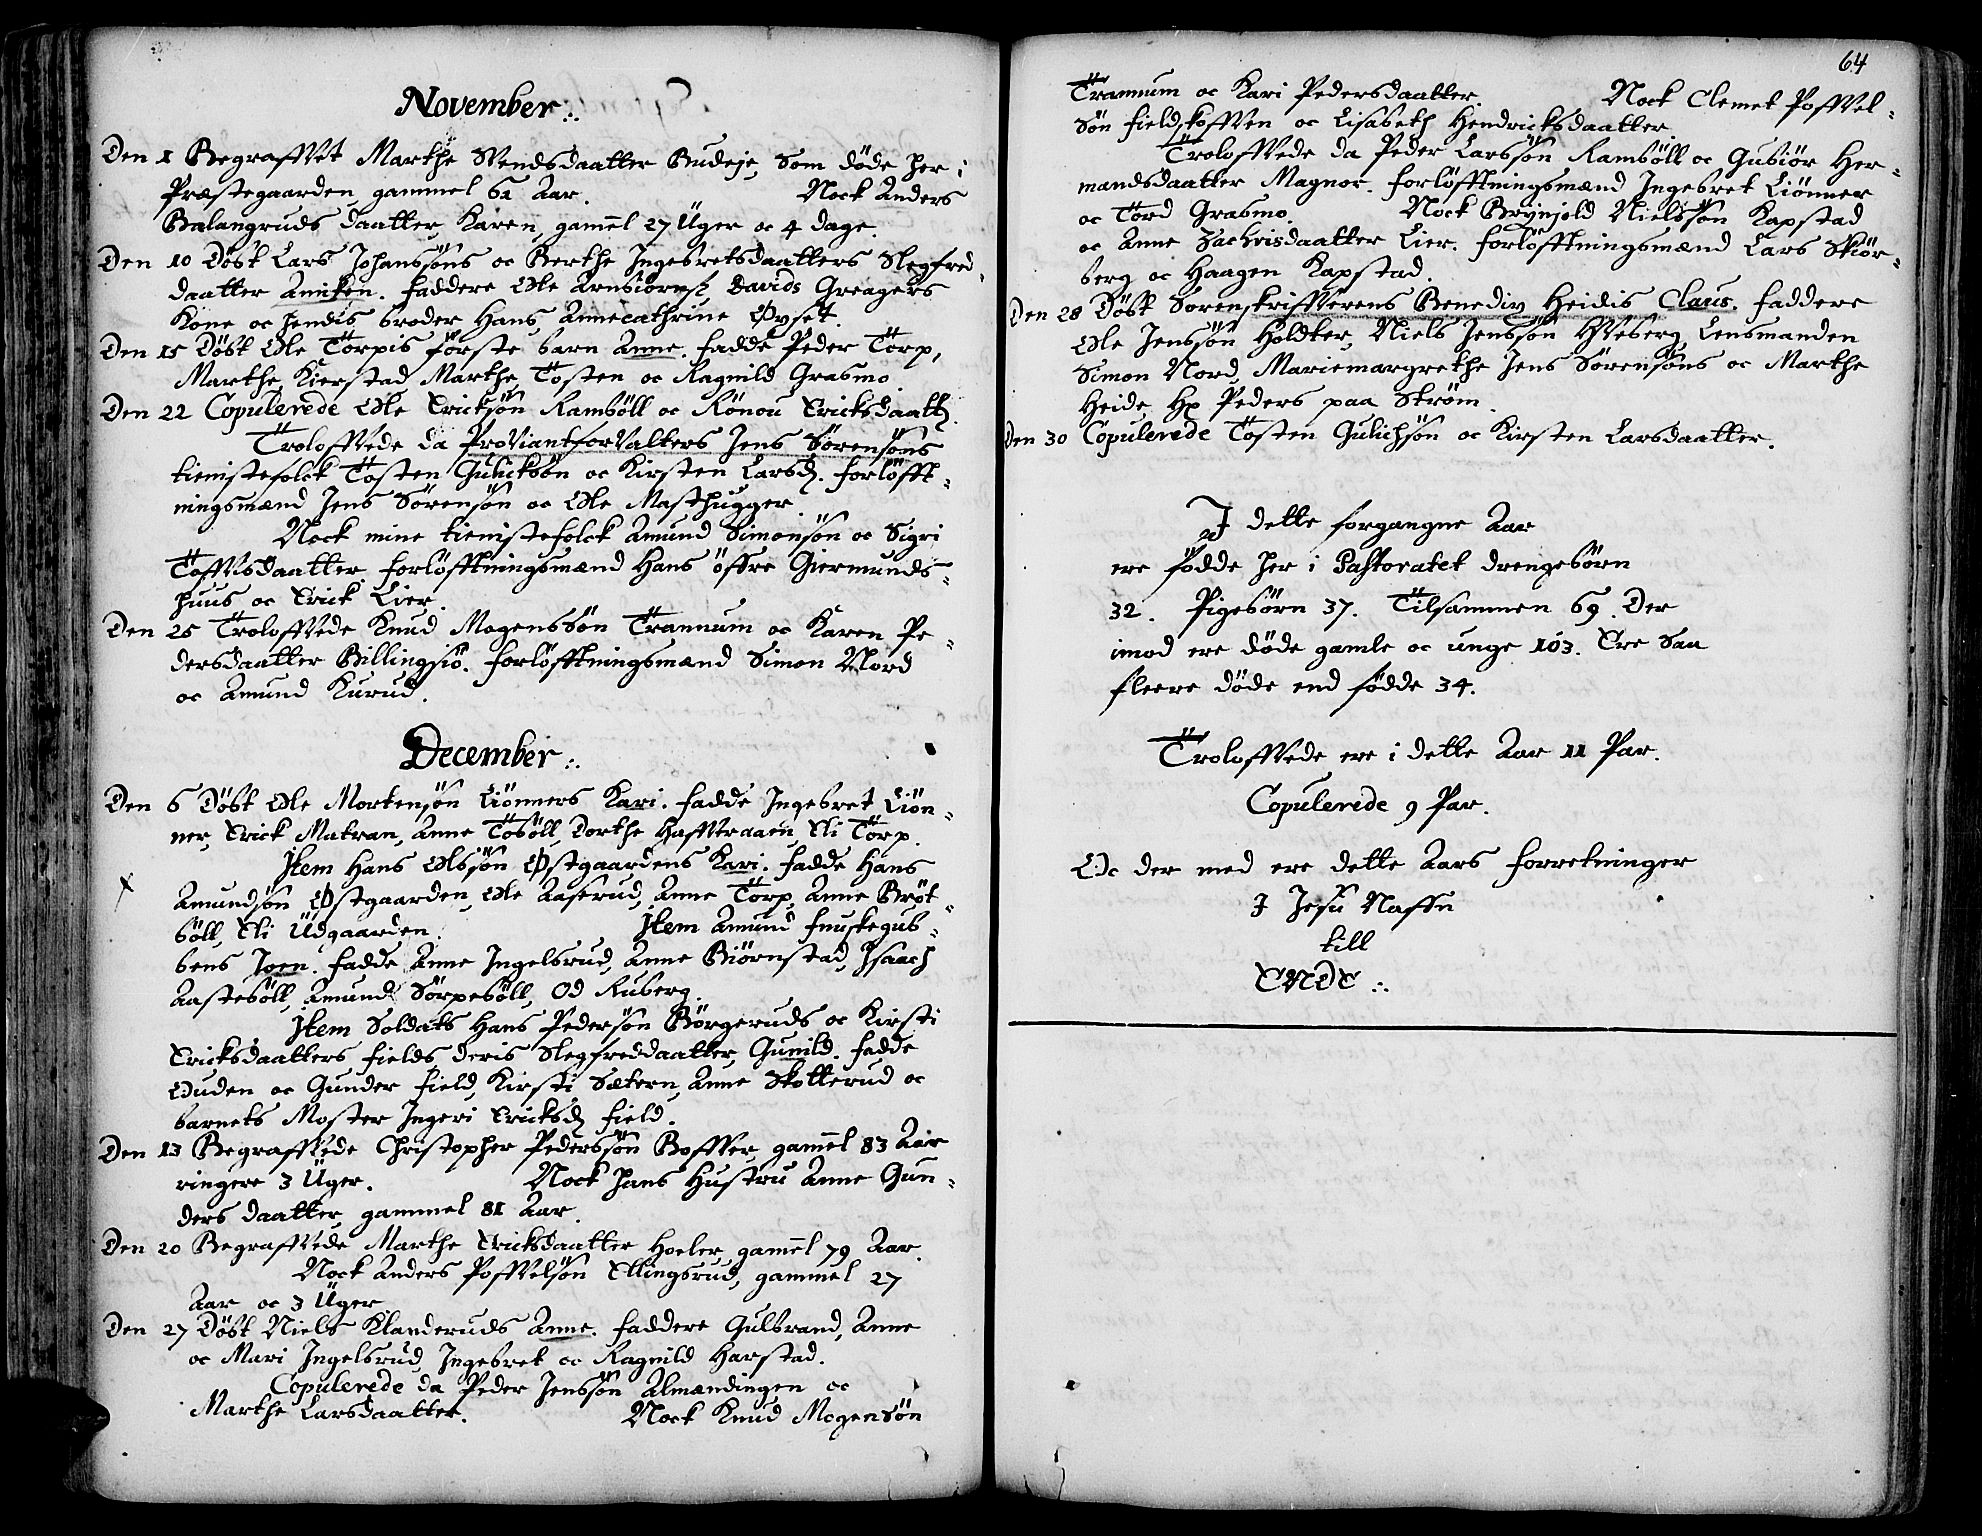 November:.
Den 1 Begraffvet Marthe Svendsdaatter Budeje, Som døde her i
Præstegaarden, gammel 62 Aar. Nock Anders
Balangruds daatter, Karen, gam̄el 27 Üger oc 4 dage.
Den 10 Døbt Lars Johanssøns oc Berthe Ingebretsdaatters Slegfred-
daatter Anniken. Faddere Ole Arnbiørns, Davids Greagers
Kone oc hendis broder Hans, Annecathrine Øvset.
Den 15 Døbt Ole Törpis første barn Anne. Fadde Peder Törp,
Marthe Kierstad, Marthe, Tosten oc Ragnild Grasmo.
Den 22 Copulerede Ole Ericksøn Rambøll oc Rønou Ericksdaatt.
Troloffvede da Proviantforvalters Jens Sørensøns
tienistefolck Tosten Gulicksøn oc Kirsten Larsd. Forløfft-
ningsmænd Jens Sørensøn oc Ole Masthugger.
Nock mine tienistefolck Amund Simonsøn oc Sigri
Toffvsdaatter, Forløfftningsmænd Hans öffre Giermunds-
huus oc Erick Lier.
Den 25 Troloffvede Knud Mogenssøn Trannum oc Karen Pe-
dersdaatter Billingsiø. Forløfftningsmænd Simon Nord
oc Amund Kurud.
December:.
Den 6 Døbt Ole Mortensøn Liønners Kari. Fadde Ingebret Liøn-
ner, Erick Matran, Anne Tobøll, Dorthe Haffveraaen, Eli Törp.
Item Hans Olssøn Østgaardens Kari. Fadde Hans
Amundsøn Østgaarden, Ole Aaserud, Anne Törp, Anne Brøt-
bøll, Eli Üdgaarden. Item Amund Fnuskegub-
bens Joen. Fadde Anne Ingelsrud, Anne Biørnstad, Isaach
Aastebøll, Amund Sørpebøll, Od Ruberg.
Item Soldats Hans Pedersøn Børgeruds oc Kirsti
Ericksdaatters Fields deris Slegfreddaatter, Gunild. Fadde
Ouden oc Gunder Field, Kirsti Sætern, Anne Skotterud oc
barnets Moster Ingeri Ericksd Field.
Den 13 Begraffvede Christopher Pederssøn Boffver, gam̄el 83 Aar
ringere 3 Üger. Nock hans Hustru Anne Gun-
ders daatter, gammel 81 Aar.
Den 20 Begraffvede Marthe Ericksdaatter Hoeler, gam̄el 79 Aar.
Nock Anders Poffvelsøn Ellingsrud, gammel 27
Aar oc 3 Üger
Den 27 Døbt Niels Klanderuds Anne. Faddere Gulbrand, Anne
oc Mari Ingelsrud, Ingebret oc Ragnild Harstad.
Copulerede da Peder Jenssøn Almændingen oc
Marthe Larsdaatter. Nock Knud Mogensøn
64
Trannum oc Kari Pedersdaatter. Nock Clemet Poffvel-
Søn Fieldskoffven oc Lisabeth Hendricksdaatter.
Troloffvede da Peder Larssøn Rambøll oc Gubiør Her-
mandsdaatter Magnor. Forløfftningsmænd Ingebret Liønner
oc Tord Grasmo. Nock Brÿnjold Nielssøn Kapstad
oc Anne Zachrisdaatter Lier. Forløfftningsmænd Lars Skiør-
berg oc Haagen Kapstad.
Den 28 Døbt Sorenskriffverens Benedix Heidis Claus. Faddere
Ole Jenssøn Holdter, Niels Jenssøn Hveberg, Lensmanden
Simon Nord, Mariemargrethe Jens Sørensøns oc Marthe
Heide, Hr Peders paa Strøm.
Den 30 Copulerede Tosten Gulichsøn oc Kirsten Larsdaatter.
I dette forgangne Aar
ere fødde her i Pastoratet drengebørn
32. Pigebørn 37. Tilsammen 69. Der
imod ere døde gamle oc unge 103. Ere Saa
fleere døde end fødde 34.
Troloffvede ere i dette Aar 11 Par.
Copulerede 9 Par.
Oc der med ere dette Aars Forretninger
I Jesu Naffn
till
ENDE:.